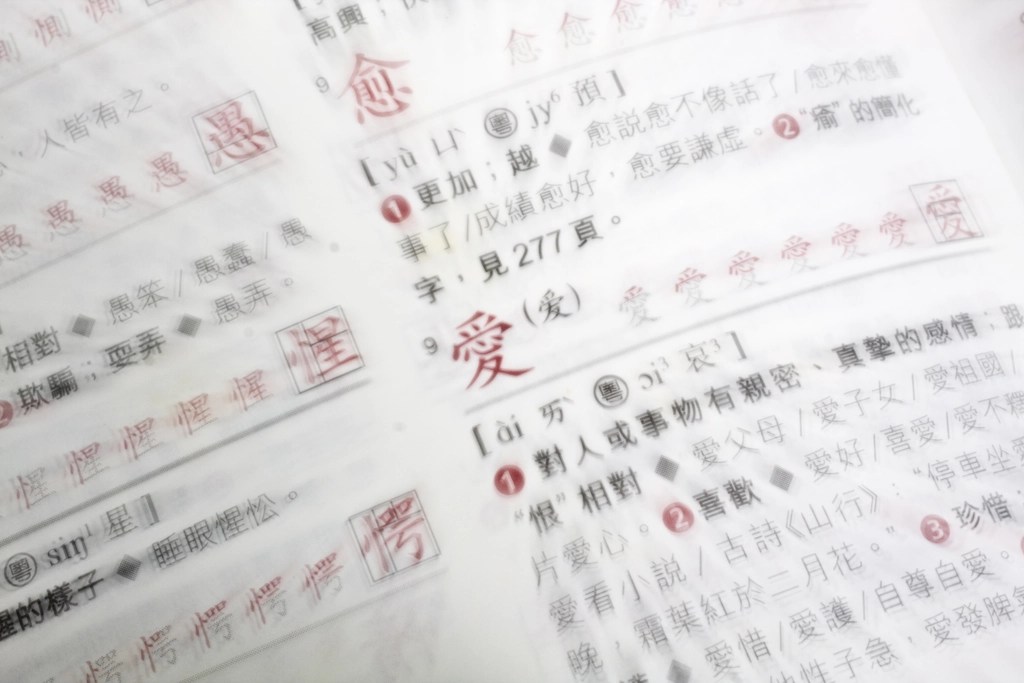 惻 惻
人皆有之。
愚
愚 愚 愚 愚
愚笨/愚蠢/愚
相對◆愚弄。
❷欺騙;耍弄◆
惺
惺 惺 惺 惺 惺
粵 siŋ¹ 星]
惺的樣子◆睡眼惺忪。
愕
愕 愕 愕 愕 愕
高興
愈 愈 愈
9 愈
[yù ㄩˋ 粵 jy⁶ 預]
❶更加;越◆愈說愈不像話了/愈來愈懂
事了/成績愈好,愈要謙虛。❷“瘉”的簡化
字,見277頁。
9 愛(爱) 愛 愛 愛 愛 愛 愛 愛
[ài ㄞˋ 粵 ɔi³ 哀³]
❶對人或事物有親密、真摯的感情;跟
“恨”相對◆愛父母/愛子女/愛祖國/
片愛心。❷喜歡◆愛好/喜愛/愛不釋
愛看小說/古詩《山行》:“停車坐愛
晚,霜葉紅於二月花。”❸珍惜;
愛惜/愛護/自尊自愛。
他性子急,愛發脾氣